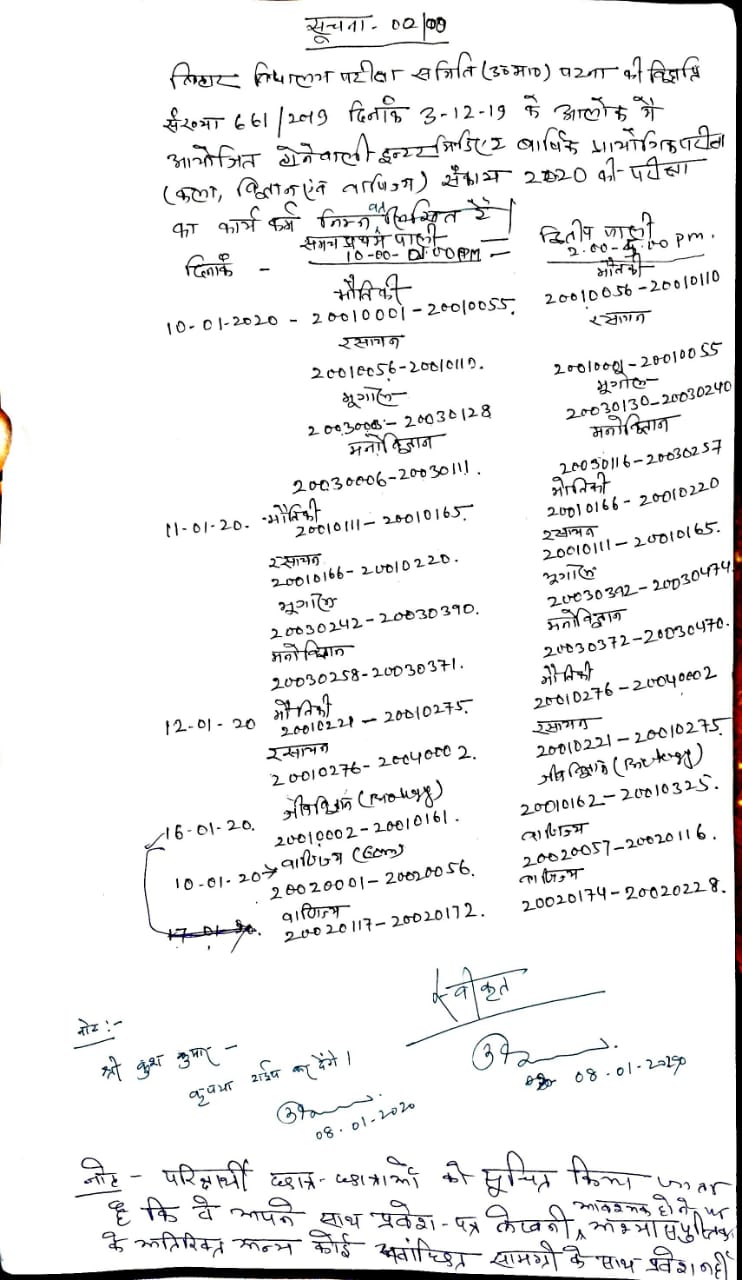 सूचना - 02/09
बिहार विद्यालय परीक्षा समिति (उ०मा०) पटना की विज्ञप्ति
संख्या 661/2019 दिनांक 3-12-19 के आलोक में
आयोजित होनेवाली इन्टरमिडिएट वार्षिक प्रायोगिक परीक्षा
(कला, विज्ञान एवं वाणिज्य) संकाय 2020 की परीक्षा
का कार्य क्रम निम्न वत् लिखित है।
समय प्रथम पाली द्वितीय पाली
दिनांक - 10-00-01.00PM = 2.00-5.00 pm.
भौतिकी भौतिकी
10-01-2020 - 20010001-20010055. 20010056-20010110
रसायन रसायन
20010056-20010110. 20010001-20010055
भूगोल भूगोल
2003000 - 20030128 20030130-20030240
मनोविज्ञान मनोविज्ञान
20030006-20030111. 20030116-20030257
11-01-20. भौतिकी भौतिकी
20010111-20010165. 20010166-20010220
रसायन रसायन
20010166-20010220. 20010111-20010165.
भूगोल भूगोल
20030242-20030390. 20030392-20030474.
मनोविज्ञान मनोविज्ञान
20030258-20030371. 20030372-20030470.
12-01-20 भौतिकी भौतिकी
20010221-20010275. 20010276-20040002
रसायन रसायन
20010276-20040002. 20010221-20010275.
16-01-20. जीव विज्ञान (Biology) जीव विज्ञान (Biology)
20010002-20010161. 20010162-20010325.
10-01-20→ वाणिज्य (Com) वाणिज्य
20020001-20020056. 20020057-20020116.
17-01-20. वाणिज्य वाणिज्य
20020117-20020172. 20020174-20020228.
स्वीकृत
08-01-2020
नोट:-
श्री कुश कुमार -
कृपया टाईप कर देंगे।
08.01.2020
नोट - परिक्षार्थी छात्र-छात्राओं को सूचित किया जाता
है कि वे अपने साथ प्रवेश-पत्र लेखनी, आवश्यक होने पर अभ्यास पुस्तिका
के अतिरिक्त अन्य कोई अवांच्छित सामग्री के साथ प्रवेश नहीं